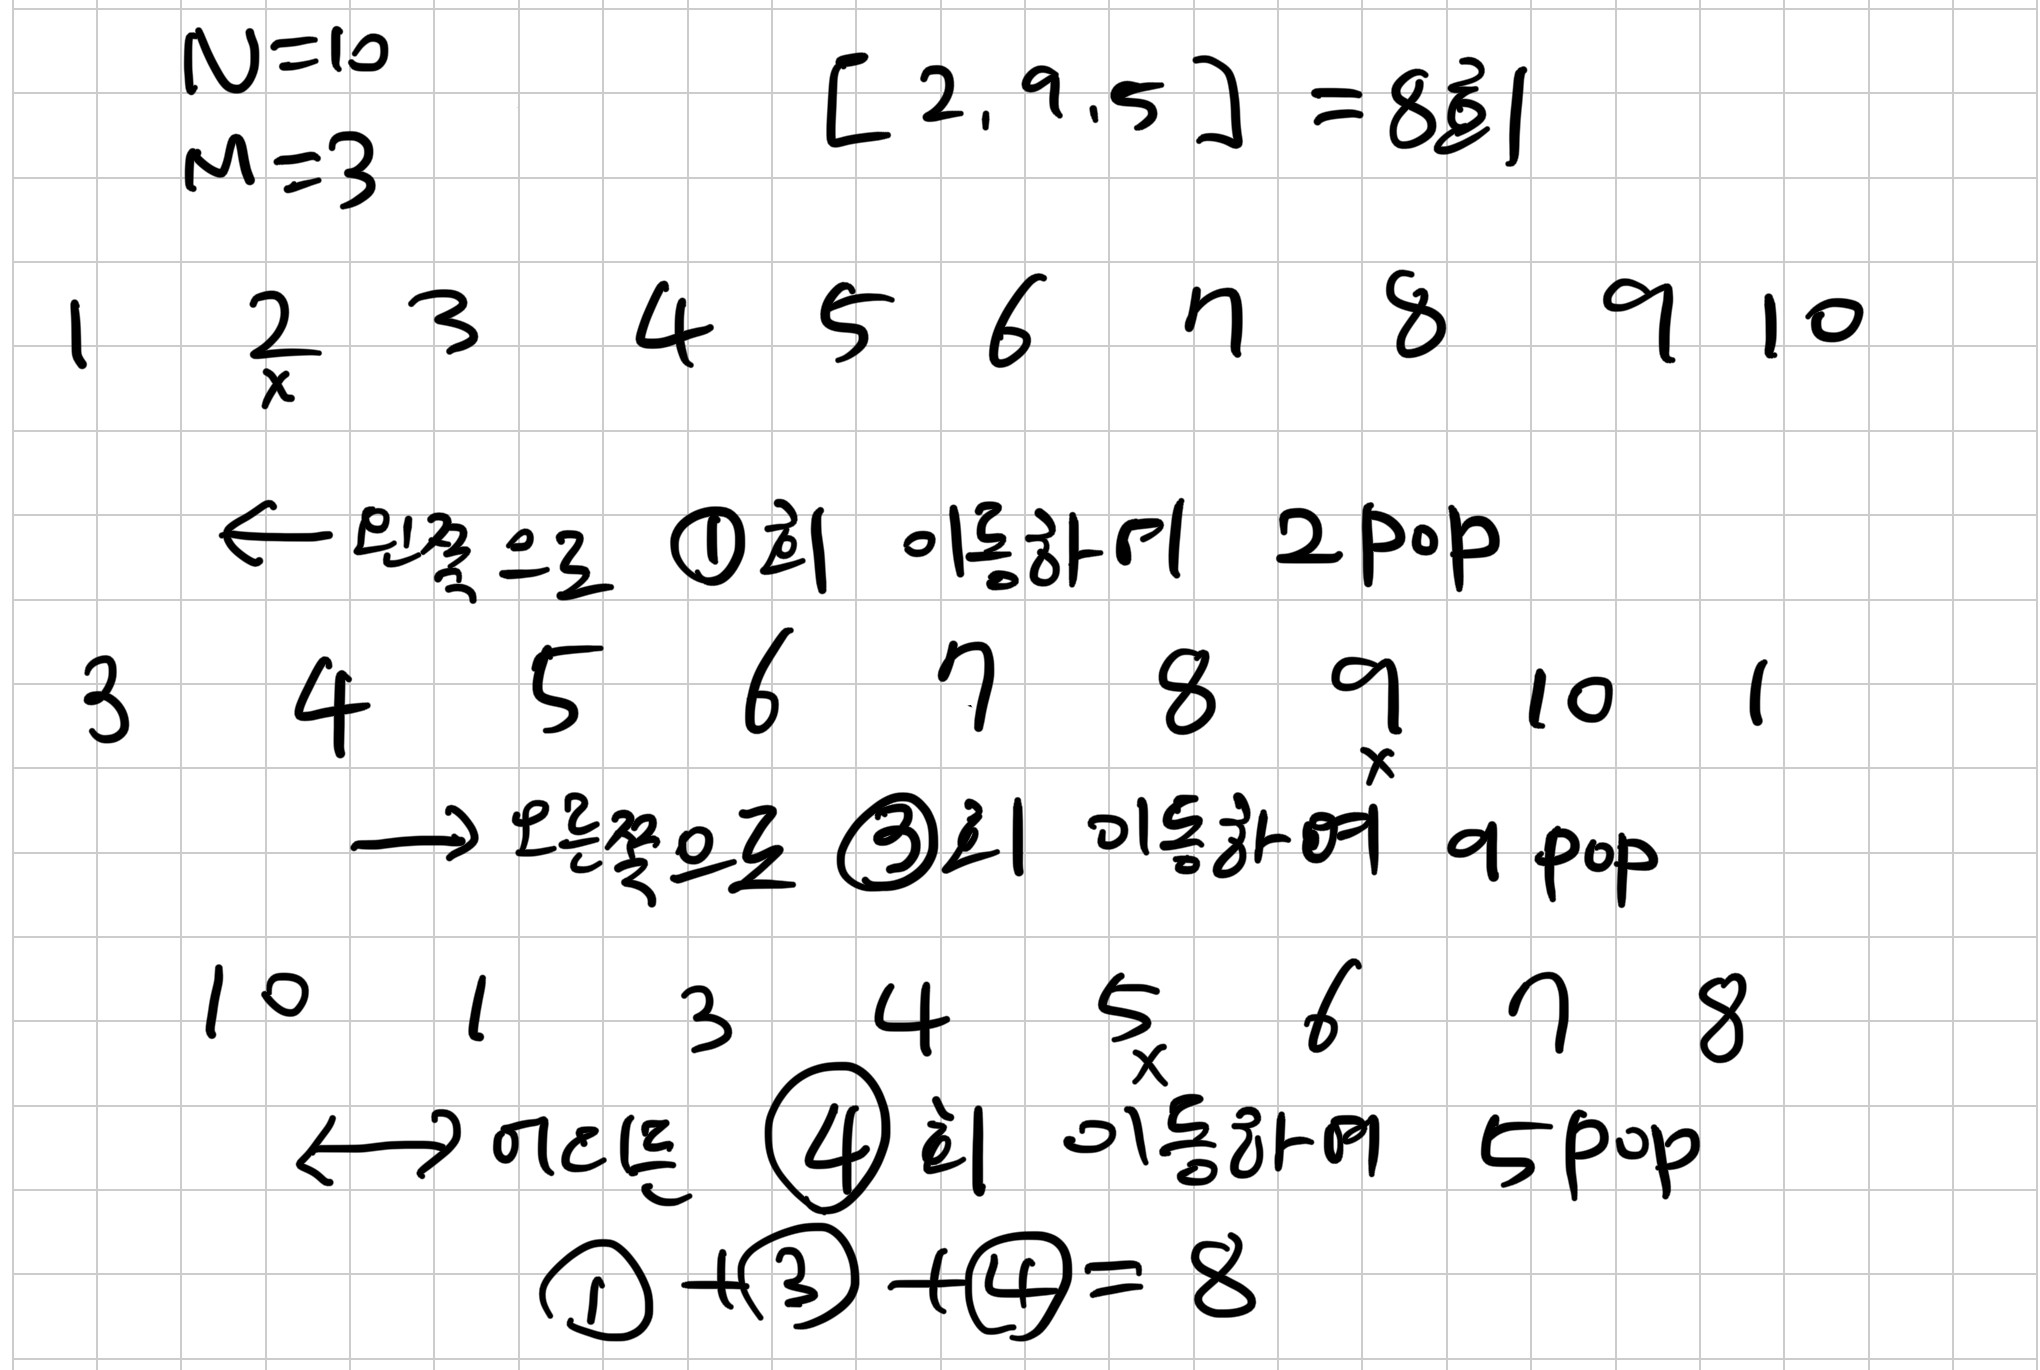 N=10
[2, 9, 5] = 8회
M=3
1 2 3 4 5 6 7 8 9 10
x
← 왼쪽으로 ①회 이동하며 2 pop
3 4 5 6 7 8 9 10 1
x
→ 오른쪽으로 ③회 이동하여 9 pop
10 1 3 4 5 6 7 8
x
←→ 어디든 ④회 이동하여 5 pop
① + ③ + ④ = 8